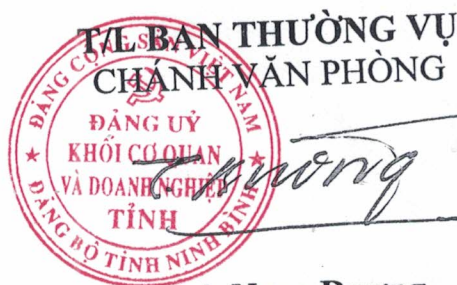 T/L BAN THƯỜNG VỤ
CHÁNH VĂN PHÒNG
ĐẢNG CỘNG SẢN VIỆT NAM
ĐẢNG UỶ
KHỐI CƠ QUAN
VÀ DOANH NGHIỆP
TỈNH
ĐẢNG BỘ TỈNH NINH BÌNH